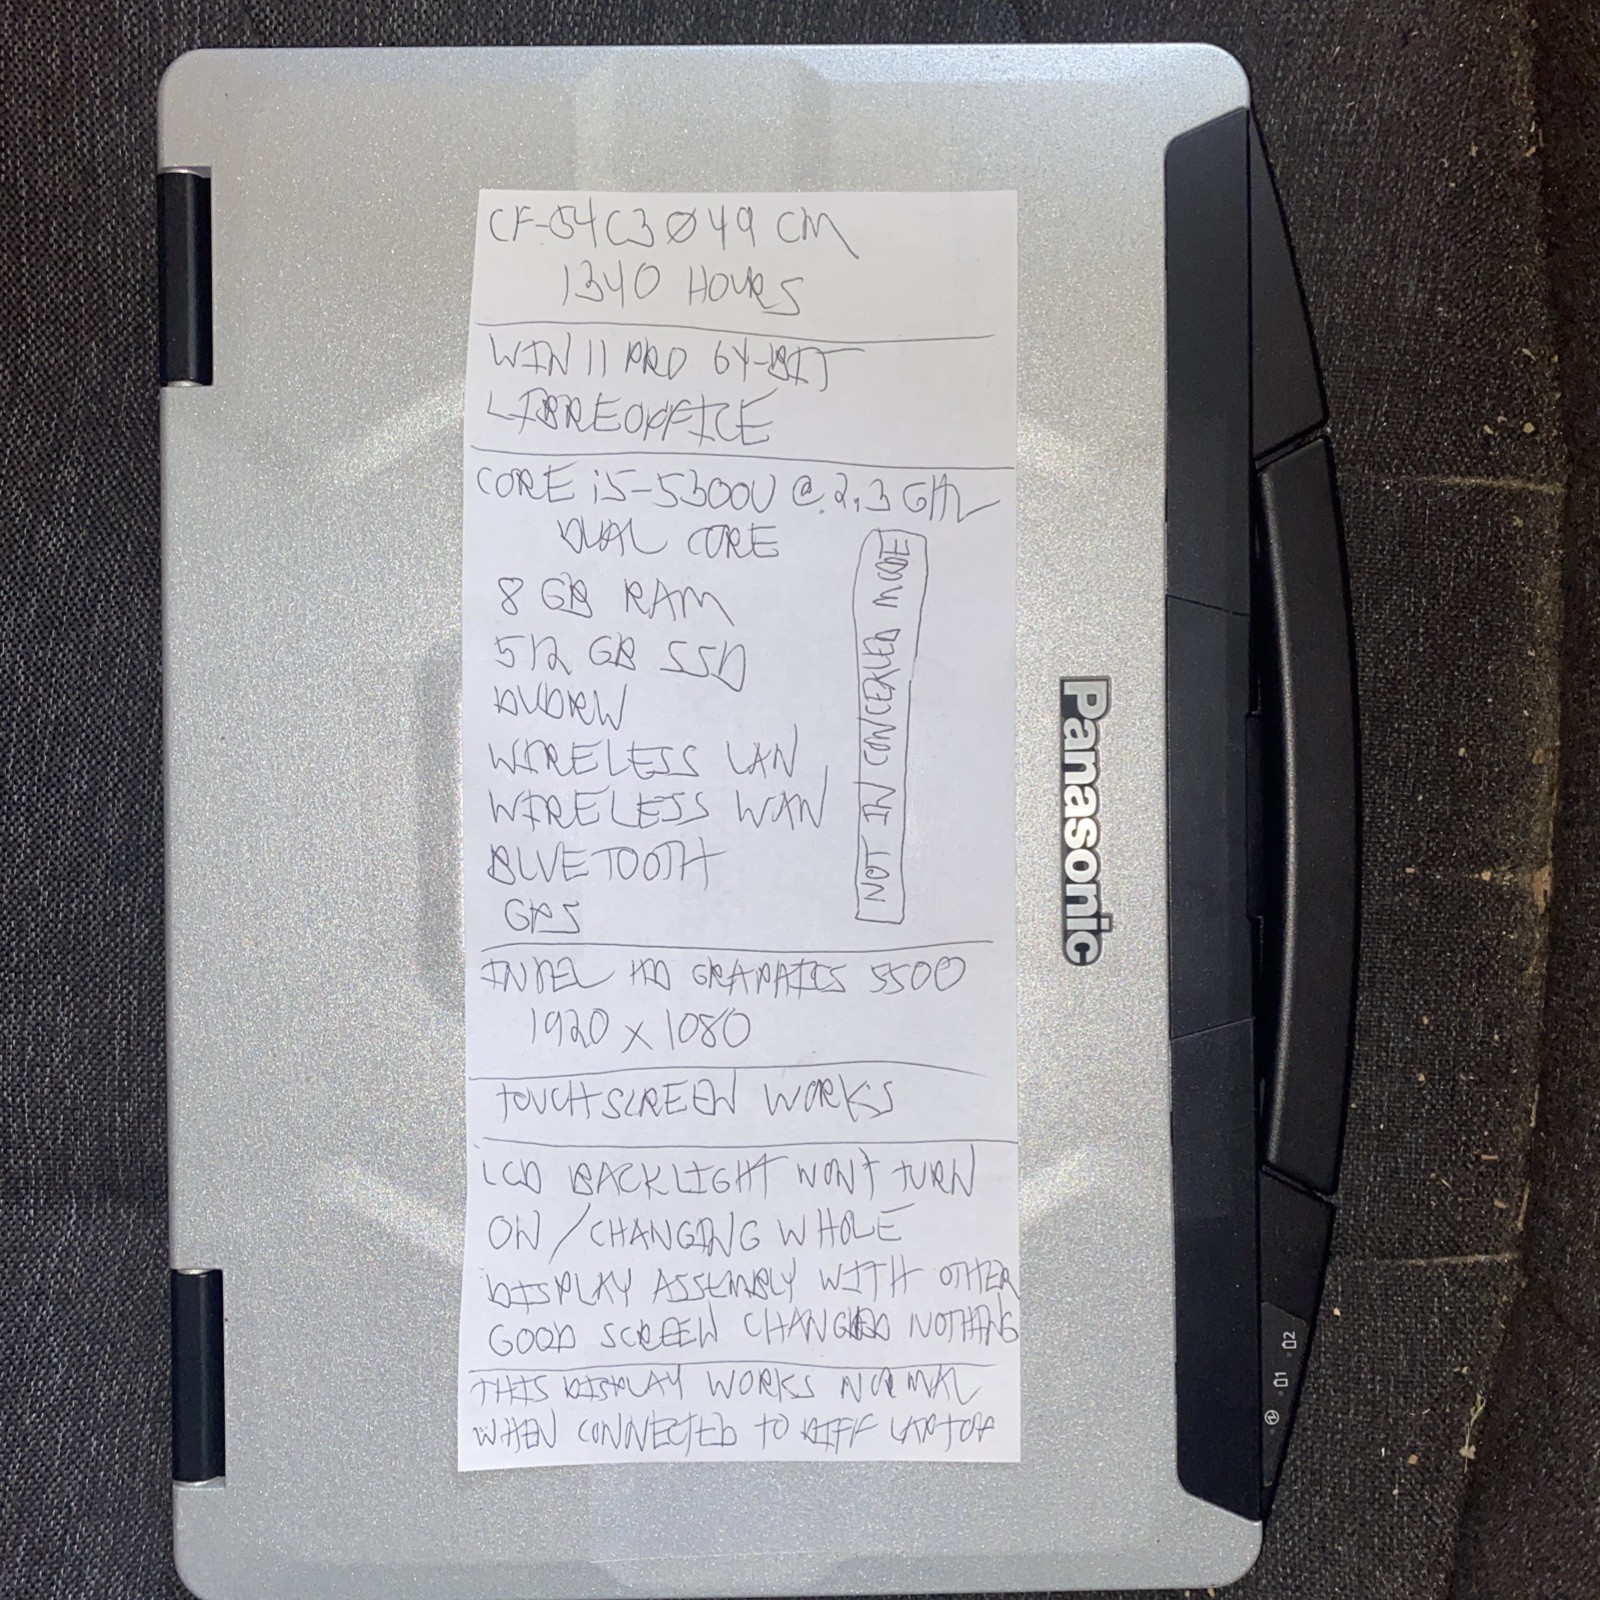 CF-54C3Ø49 CM
1340 HOURS
WIN 11 PRO 64-BIT
LIBREOFFICE
CORE i5-5300U @ 2.3 GHz
DUAL CORE
8 GB RAM
512 GB SSD
DVDRW
WIRELESS LAN
WIRELESS WAN
BLUETOOTH
GPS
NOT IN CONCEALED MODE
INTEL HD GRAPHICS 5500
1920 x 1080
TOUCHSCREEN WORKS
LCD BACKLIGHT WON'T TURN
ON / CHANGING WHOLE
DISPLAY ASSEMBLY WITH OTHER
GOOD SCREEN CHANGED NOTHING
THIS DISPLAY WORKS NORMAL
WHEN CONNECTED TO DIFF LAPTOP
Panasonic
1
2